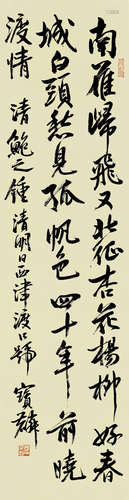 南雁歸飛又北征杏花楊柳好春
城白頭愁見孤帆色四十年前曉
渡情 清鮑之鍾清明日西津渡口號 寶